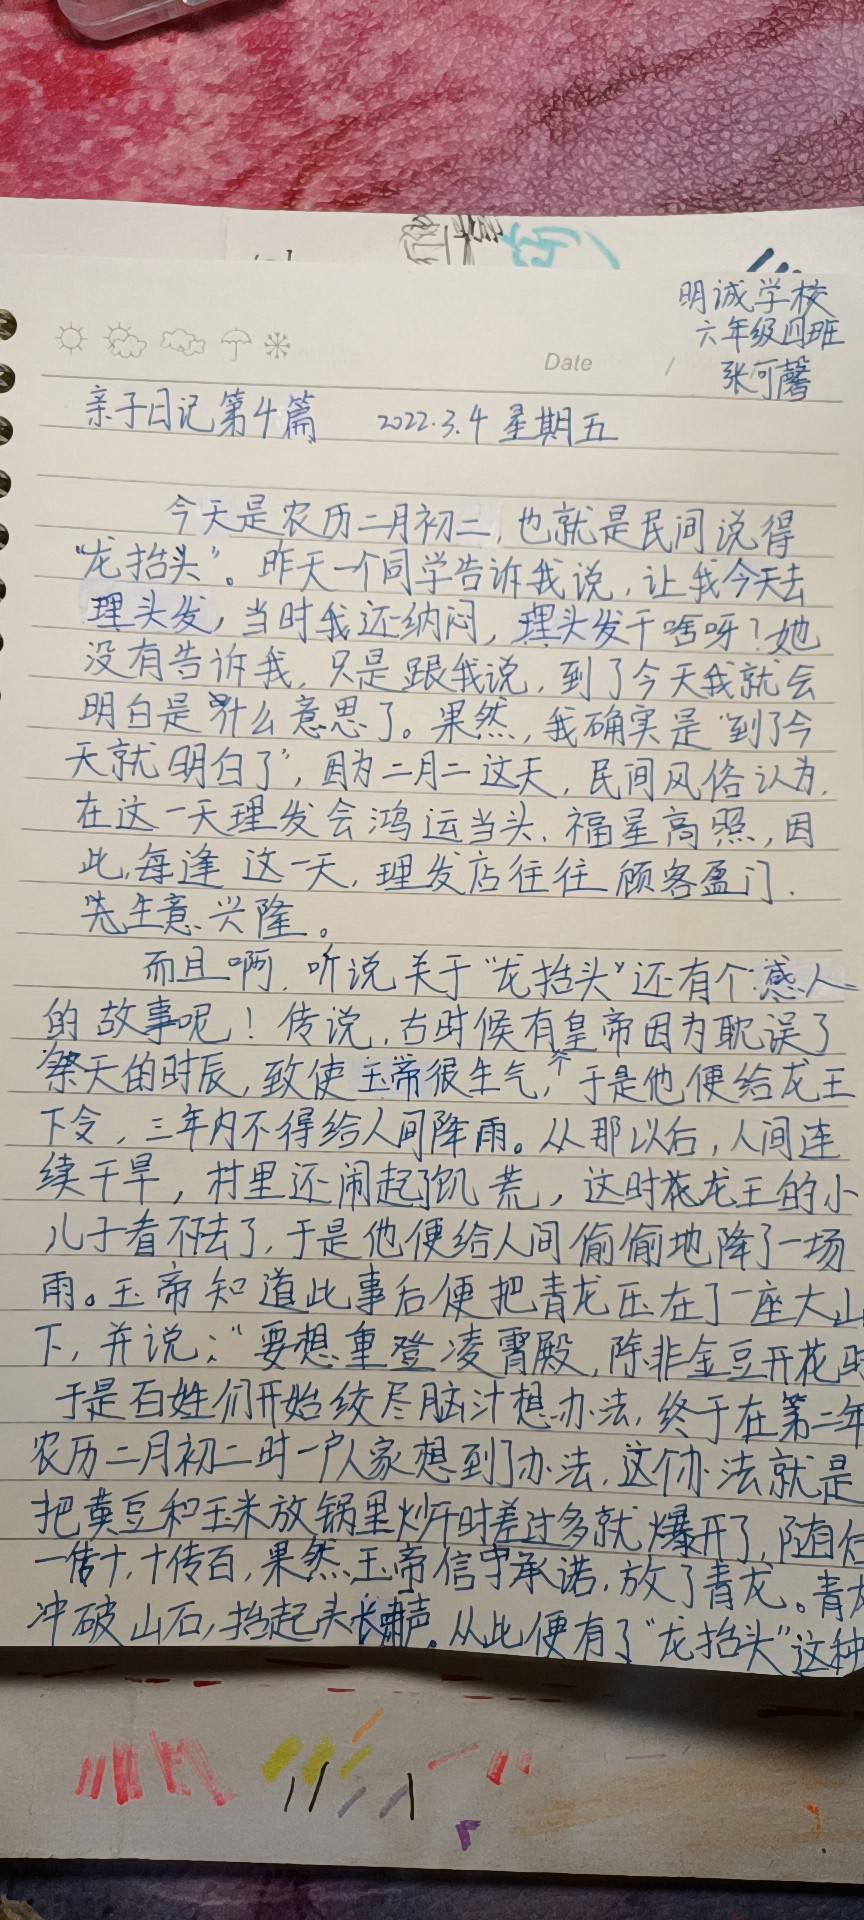 明诚学校
六年级四班
张可馨
Date /
亲子日记第4篇 2022.3.4 星期五
今天是农历二月初二,也就是民间说得
“龙抬头”。昨天一个同学告诉我说,让我今天去
理头发,当时我还纳闷,理头发干啥呀?她
没有告诉我,只是跟我说,到了今天我就会
明白是什么意思了。果然,我确实是“到了今
天就明白了”,因为二月二这天,民间风俗认为,
在这一天理发会鸿运当头、福星高照,因
此,每逢这一天,理发店往往顾客盈门、
生意兴隆。
而且啊,听说关于“龙抬头”还有个感人
的故事呢!传说,古时候有皇帝因为耽误了
祭天的时辰,致使玉帝很生气,于是他便给龙王
下令,三年内不得给人间降雨。从那以后,人间连
续干旱,村里还闹起了饥荒,这时龙王的小
儿子看不下去了,于是他便给人间偷偷地降了一场
雨。玉帝知道此事后便把青龙压在了一座大山
下,并说:“要想重登凌霄殿,除非金豆开花时
于是百姓们开始绞尽脑汁想办法,终于在第二年
农历二月初二时一户人家想到了办法,这个办法就是
把黄豆和玉米放锅里炒开时差过多就爆开了,随后
一传十,十传百,果然,玉帝信守承诺,放了青龙。青龙
冲破山石,抬起头长啸声。从此便有了“龙抬头”这种